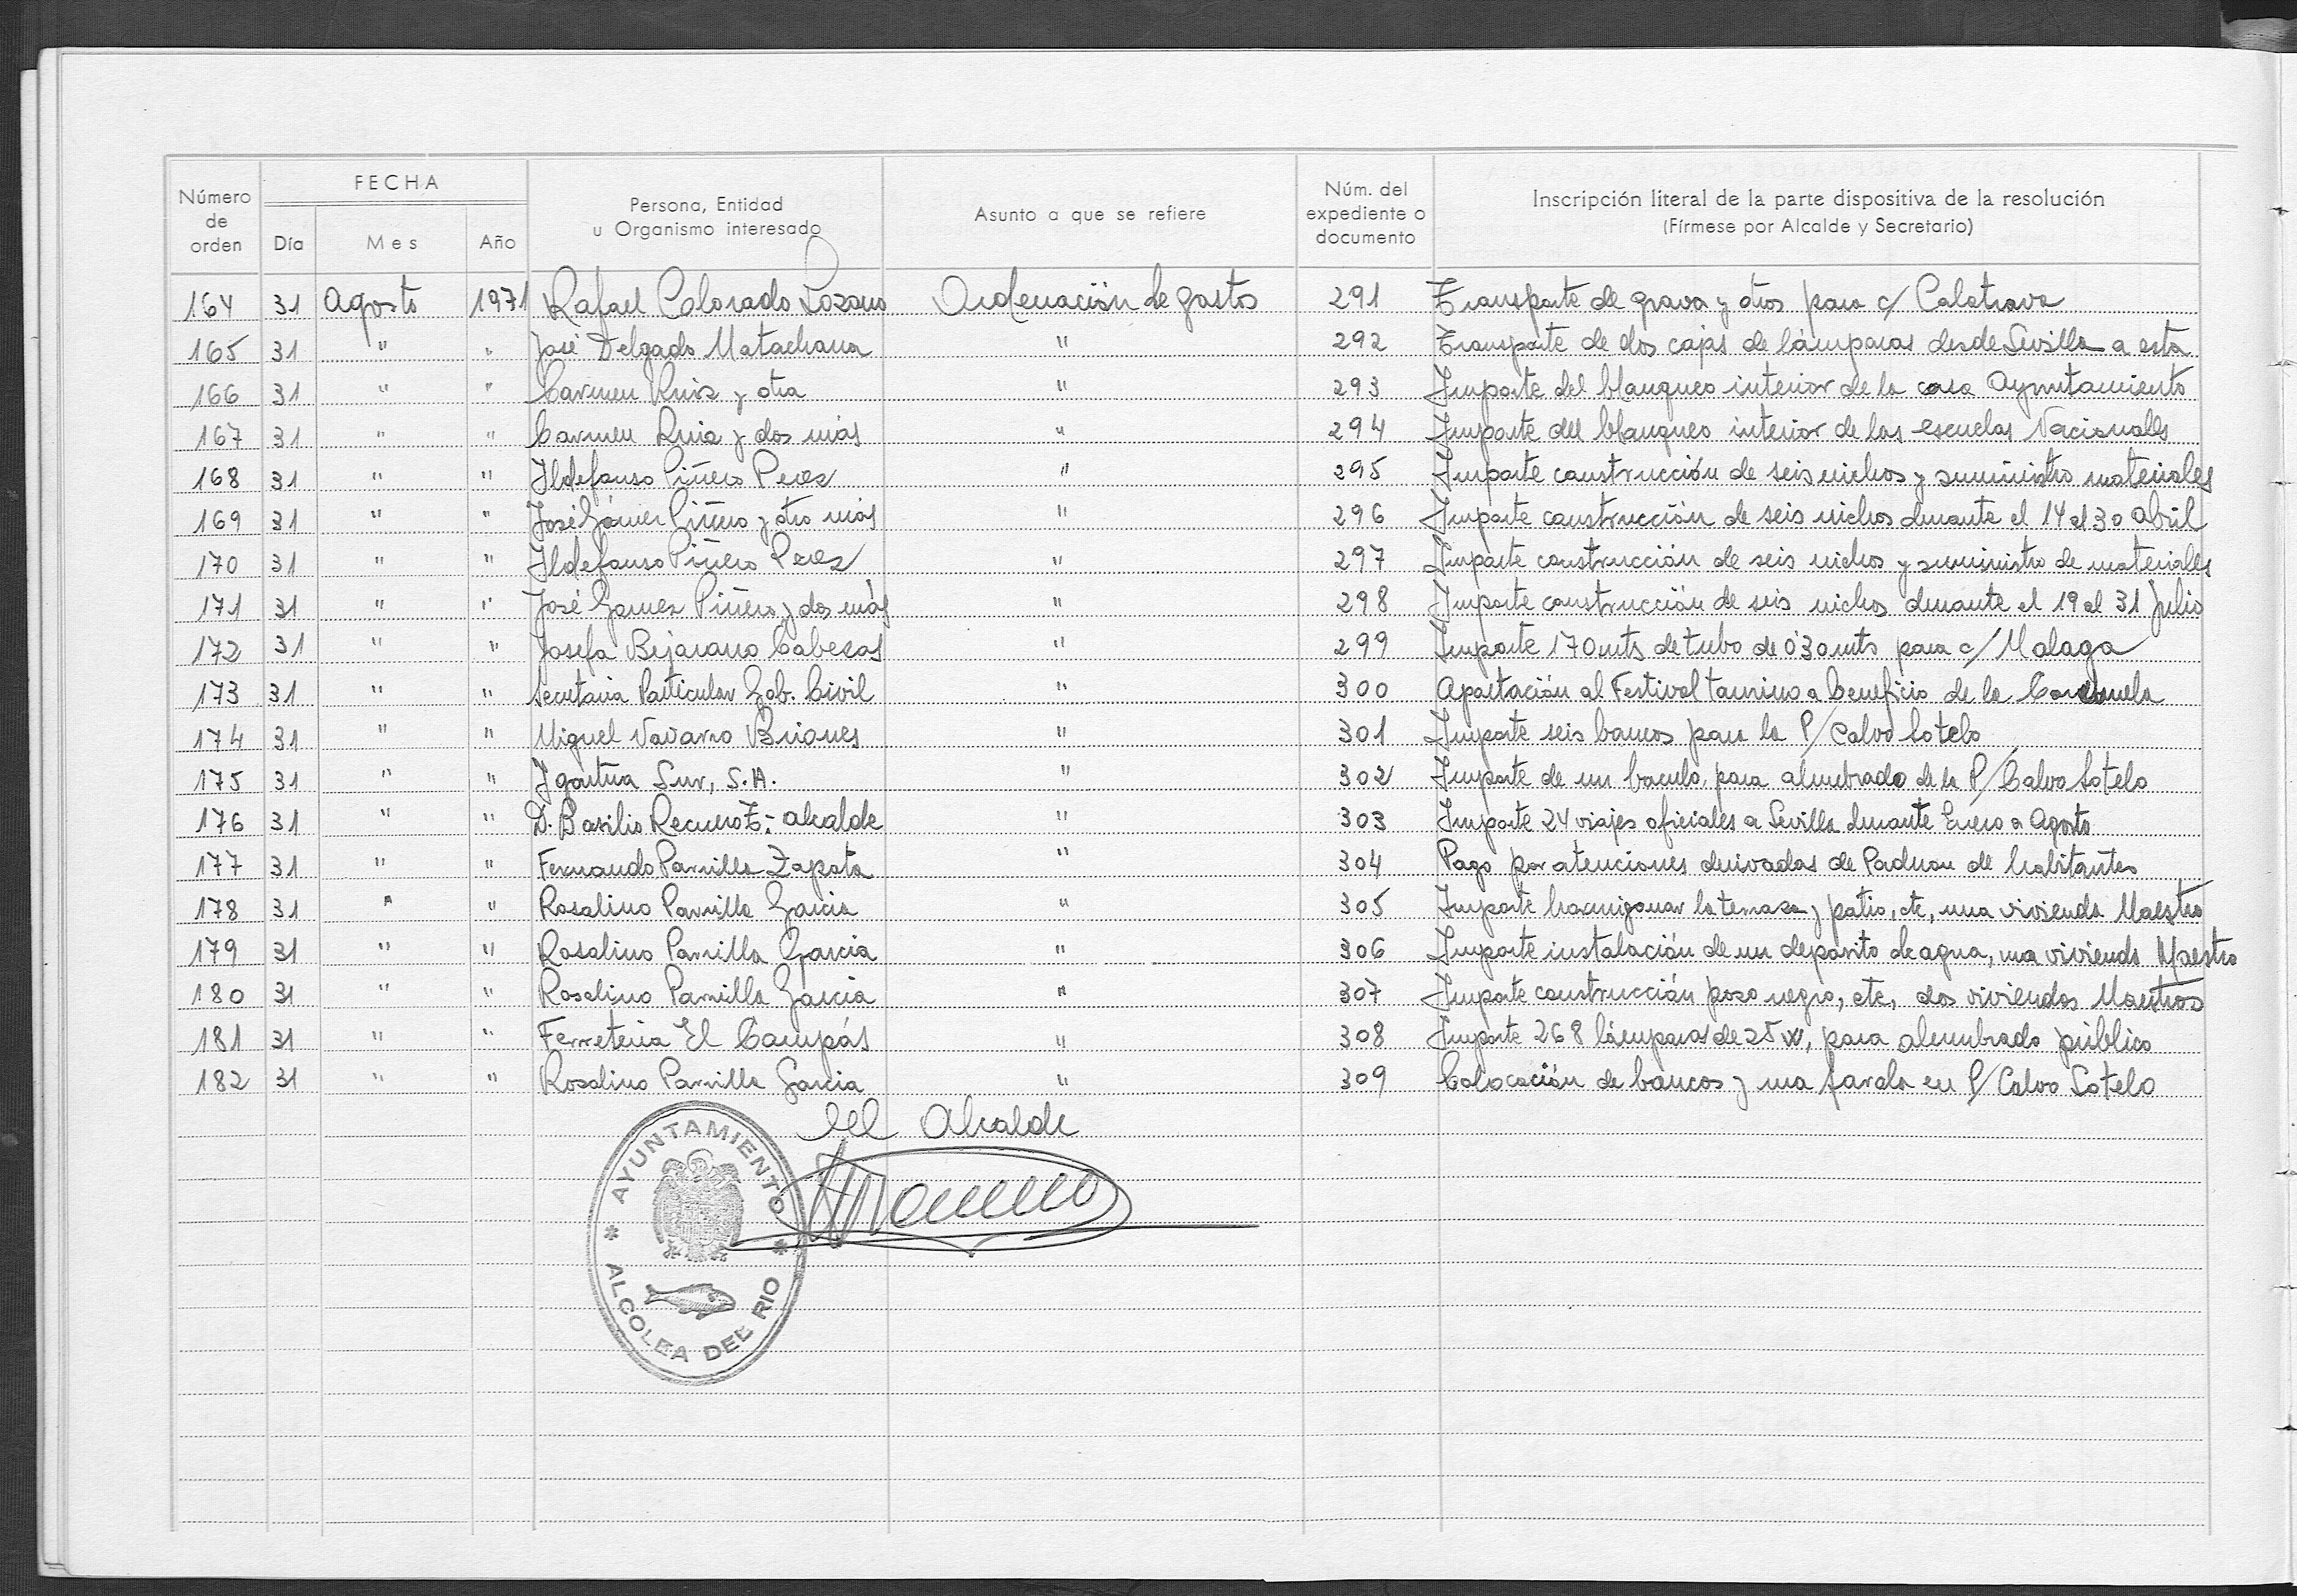 Número de orden | FECHA | Persona, Entidad u Organismo interesado | Asunto a que se refiere | Núm. del expediente o documento | Inscripción literal de la parte dispositiva de la resolución (Fírmese por Alcalde y Secretario)
Día | Mes | Año
164 31 Agosto 1971 Rafael Colorado Lozano Ordenación de gastos 291 Transporte de grava y otros para c/ Calatrava
165 31 " " José Delgado Matachana " 292 Transporte de dos cajas de lámparas desde Sevilla a esta
166 31 " " Carmen Ruiz y otra " 293 Importe del blanqueo interior de la casa Ayuntamiento
167 31 " " Carmen Ruiz y dos más " 294 Importe del blanqueo interior de las escuelas Nacionales
168 31 " " Ildefonso Piñero Perez " 295 Importe construcción de seis nichos y suministro materiales
169 31 " " José Gómez Piñero y otro más " 296 Importe construcción de seis nichos durante el 14 al 30 abril
170 31 " " Ildefonso Piñero Perez " 297 Importe construcción de seis nichos y suministro de materiales
171 31 " " José Gomez Piñero y dos más " 298 Importe construcción de seis nichos durante el 19 al 31 Julio
172 31 " " Josefa Bejarano Cabezas " 299 Importe 170 mts de tubo de 0'30 mts para c/ Malaga
173 31 " " Secretaria Particular Gob. Civil " 300 Aportación al Festival taurino a beneficio de la
174 31 " " Miguel Navarro Briones " 301 Importe seis bancos para la P/ Calvo Sotelo
175 31 " " Igartua Sur, S.A. " 302 Importe de un baculo, para alumbrado de la P/ Calvo Sotelo
176 31 " " D. Basilio Recuero T.- alcalde " 303 Importe 24 viajes oficiales a Sevilla durante Enero a Agosto
177 31 " " Fernando Parrilla Zapata " 304 Pago por atenciones derivadas de Padron de habitantes
178 31 " " Rosalino Parrilla Garcia " 305 Importe hormigonar la terraza y patio, etc, una vivienda Maestro
179 31 " " Rosalino Parrilla Garcia " 306 Importe instalación de un deposito de agua, una vivienda Maestro
180 31 " " Rosalino Parrilla Garcia " 307 Importe construcción pozo negro, etc, dos viviendas Maestros
181 31 " " Ferreteria El Compás " 308 Importe 268 lámparas de 25 w, para alumbrado público
182 31 " " Rosalino Parrilla Garcia " 309 Colocación de bancos y una farola en P/ Calvo Sotelo
El Alcalde
AYUNTAMIENTO
* ALCOLEA DEL RIO *